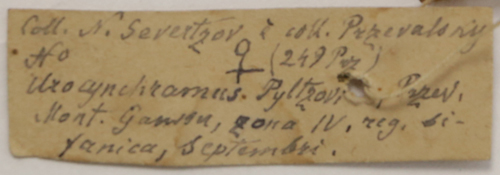 Coll. N. Severtzov è coll. Przevalskiy
No ♀ (249 Prz)
Urocynchramus. Pyltzovi, Przev.
Mont. Gansou, zona IV. reg. si-
fanica, Septembri.